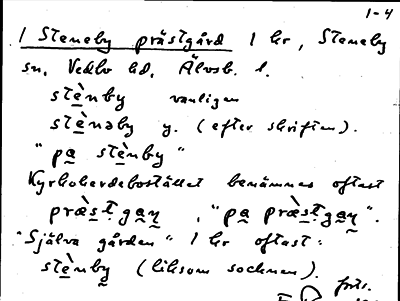 1-4
1 Steneby prästgård 1 hr, Steneby
sn, Vedbo hd, Älvsb. l.
stè̱nby vanligen
stè̱nəby y. (efter skriften).
"pa̱ stè̱nby"
Kyrkoherdebostället benämnes oftast
præ̀s̱tga̱ṉ, "pa̱ præ̀s̱tga̱ṉ".
"Själva gården" 1 hr oftast:
stè̱nby̱ (liksom socknen).
forts.